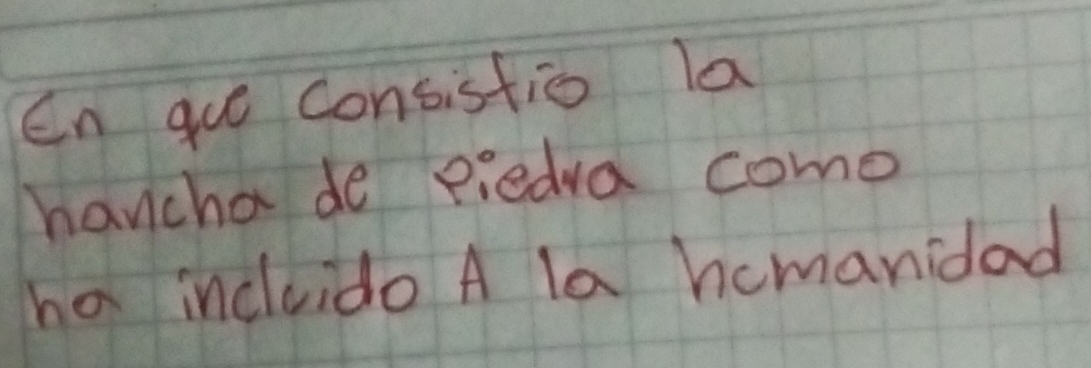 En que consistio la
hancha de piedra como
ha incluido A la humanidad